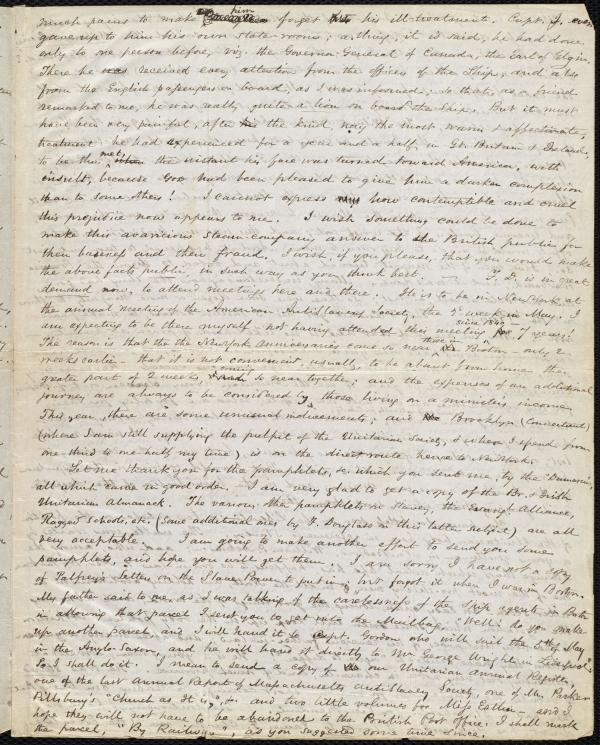 much pains to make him forget his ill-treatment. Capt. J. even
gave up to him his own state-rooms; a thing, it is said, he had done
only to one person before, viz. the Governor-General of Canada, the Earl of Elgin.
There he received every attention from the officers of the Ship, and also
from the English passengers on board, as I was informed; so that, as a friend
remarked to me, he was really quite a lion on board the Ship. But it must
have been very painful, after the kind, nay the most warm & affectionate,
treatment he had experienced for a year and a half, in Gt. Britain & Ireland,
to be thus met, the instant his face was turned toward America, with
insult, because God had been pleased to give him a darker complexion
than to some others! I cannot express how contemptible and cruel
this prejudice now appears to me. I wish something could be done to
make this avaricious steam-company answer to the British public for
their baseness and their fraud. I wish, if you please, that you would make
the above facts public in such way as you think best. F. D. is in great
demand now, to attend meetings here and there. He is to be in New York at
the annual meeting of the American Anti Slavery Society, the 2d week in May. I
am expecting to be there myself not having attended this meeting since 1840 – 7 years!
The reason is that the New York Anniversaries came so near those in Boston, only 2
weeks earlier – that it is not convenient, usually, to be absent from home the
greater part of 2 weeks, coming so near together; and the expenses of an additional
journey are always to be considered by those living on a minister's income.
This year, there are some unusual inducements; and Brooklyn (Connecticut)
(where I am still supplying the pulpit of the Unitarian Society, & where I spend from
one third to one half my time) is on the direct route hence to New York.
Let me thank you for the pamphlets, &c. which you sent me, by the
all which came in good order. I am very glad to get a copy of the Br. & Irish
Unitarian Almanack. The various other pamphlets on Slavery, the Evangl. Alliance,
Ragged schools, etc. (some additional ones by on this latter subject) are all
very acceptable. I am going to make another effort to send you some
pamphlets, and hope you will get them. I am sorry I have not a copy
of Palfrey's Letters on the Slave Power to put in; but forgot it when I was in Boston.
My father said to me, as I was talking of the carelessness of the Ship agents in Boston
in allowing that parcel I sent you to get into the Mailbag, "Well, do you make
up another parcel, and I will hand it to Capt. Gordon who will sail the 5th of May
in the Anglo-Saxon, and he will hand it directly to Mr George Wright in Liverpool."
So I shall do it. I mean to send a copy of our Unitarian Annual Register,
one of the last Annual Report of Massachusetts Anti Slavery Society, one of Mr. Parker
Pillsbury's "Church as It is", – and two little volumes for Miss Estlin – and I
hope they will not have to be abandoned to the British Post Office. I shall mark
the parcel, "By Railway", as you suggested some time since.